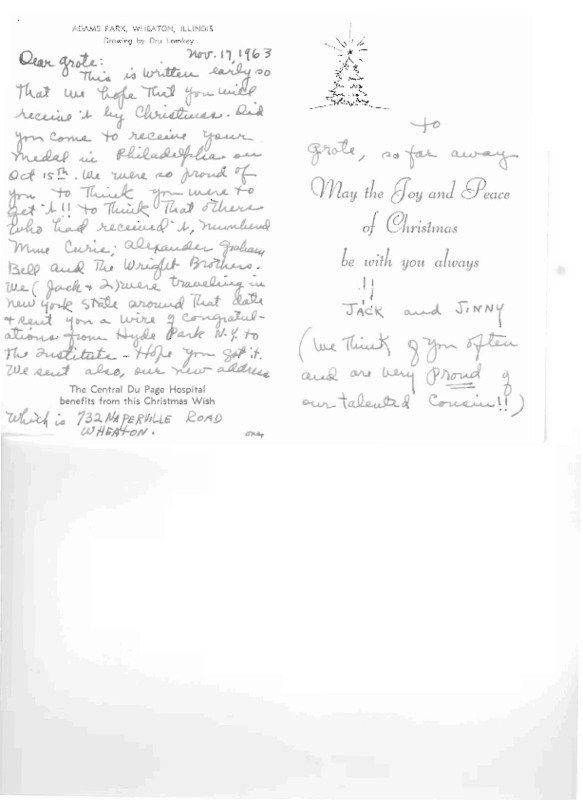 ADAMS PARK, WHEATON, ILLINOIS
Drawing by Dru Lamkey
Nov. 17, 1963
Dear Grote:
This is written early so
that we hope that you will
receive it by Christmas. Did
you come to receive your
medal in Philadelphia on
Oct 15th. We were so proud of
you to think you were to
get it!! to think that others
who had received it, numbered
Mme Curie; Alexander Graham
Bell and the Wright Brothers.
We (Jack & I) were traveling in
New York State around that date
& sent you a wire of congratul-
ations from Hyde Park N.Y. to
the Institute - Hope you got it.
We sent also, our new address
The Central Du Page Hospital
benefits from this Christmas Wish
which is 732 NAPERVILLE ROAD
WHEATON.
to
Grote, so far away
May the Joy and Peace
of Christmas
be with you always
!!
JACK and JINNY
(We think of you often
and are very proud of
our talented Cousin!!)